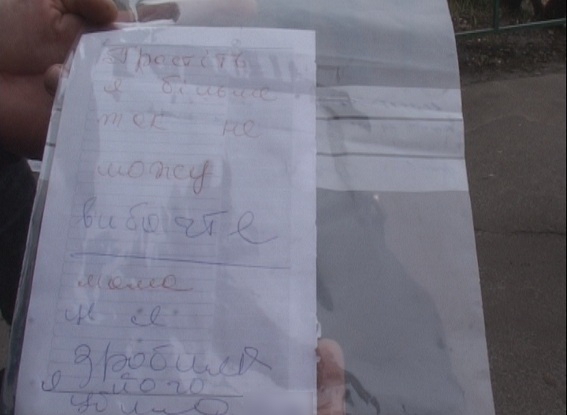 Простіть
я більше
так не
можу
вибочте
мама
н я
зробила
я його